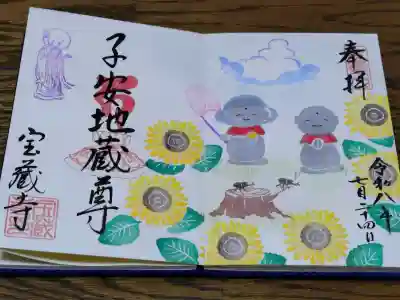 奉拝
令和八年
七月二十四日
子安地蔵尊
宝蔵寺